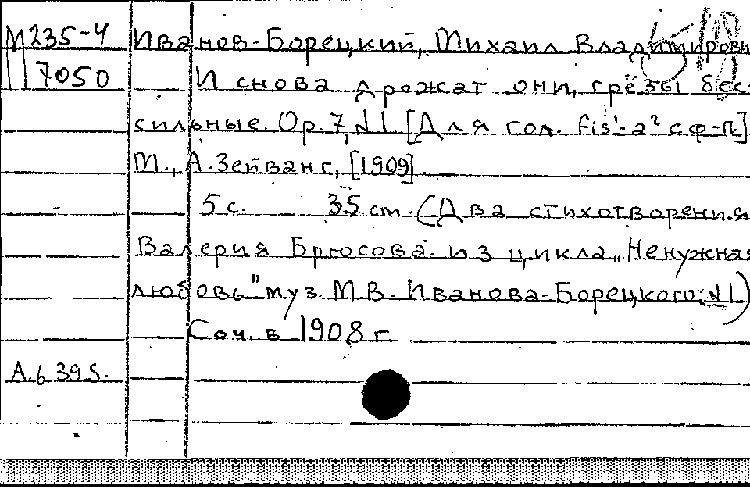 М 235-4 Иванов-Борецкий, Михаил Владимирович
7050 И снова дрожат они, грёзы бес-
сильные. Ор. 7, №1. [Для гол. fis¹-a² с ф-п.]
М., А. Зейванг, [1909]
5 с. 35 cm. (Два стихотворения
Валерия Брюсова из цикла „Ненужная
любовь" муз. М.В. Иванова-Борецкого; №1)
Соч. в 1908 г.
А.6395.